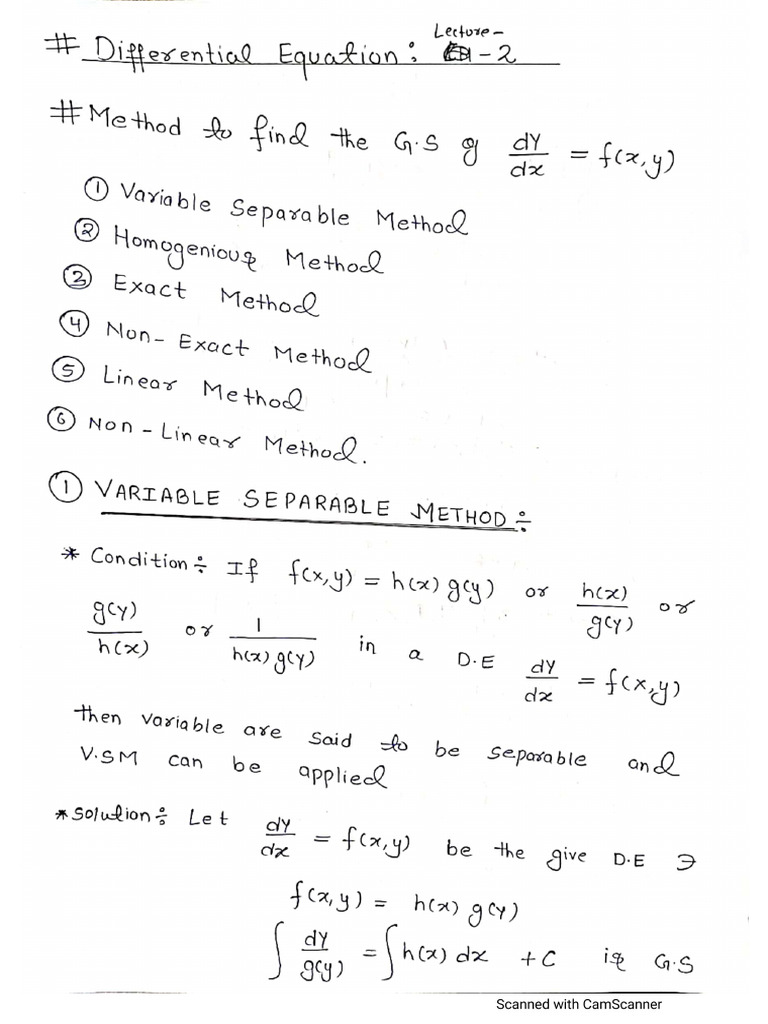 # Differential Equation: Lecture-
-2
# Method to find the G.S of dy/dx = f(x,y)
① Variable Separable Method
② Homogenious Method
③ Exact Method
④ Non-Exact Method
⑤ Linear Method
⑥ Non-Linear Method.
① VARIABLE SEPARABLE METHOD÷
* Condition÷ If f(x,y) = h(x) g(y) or h(x)/g(y) or
g(y)/h(x) or 1/h(x) g(y) in a D.E dy/dx = f(x,y)
then variable are said to be separable and
V.SM can be applied
* Solution÷ Let dy/dx = f(x,y) be the give D.E ∋
f(x,y) = h(x) g(y)
∫ dy/g(y) = ∫ h(x) dx + C is G.S
Scanned with CamScanner